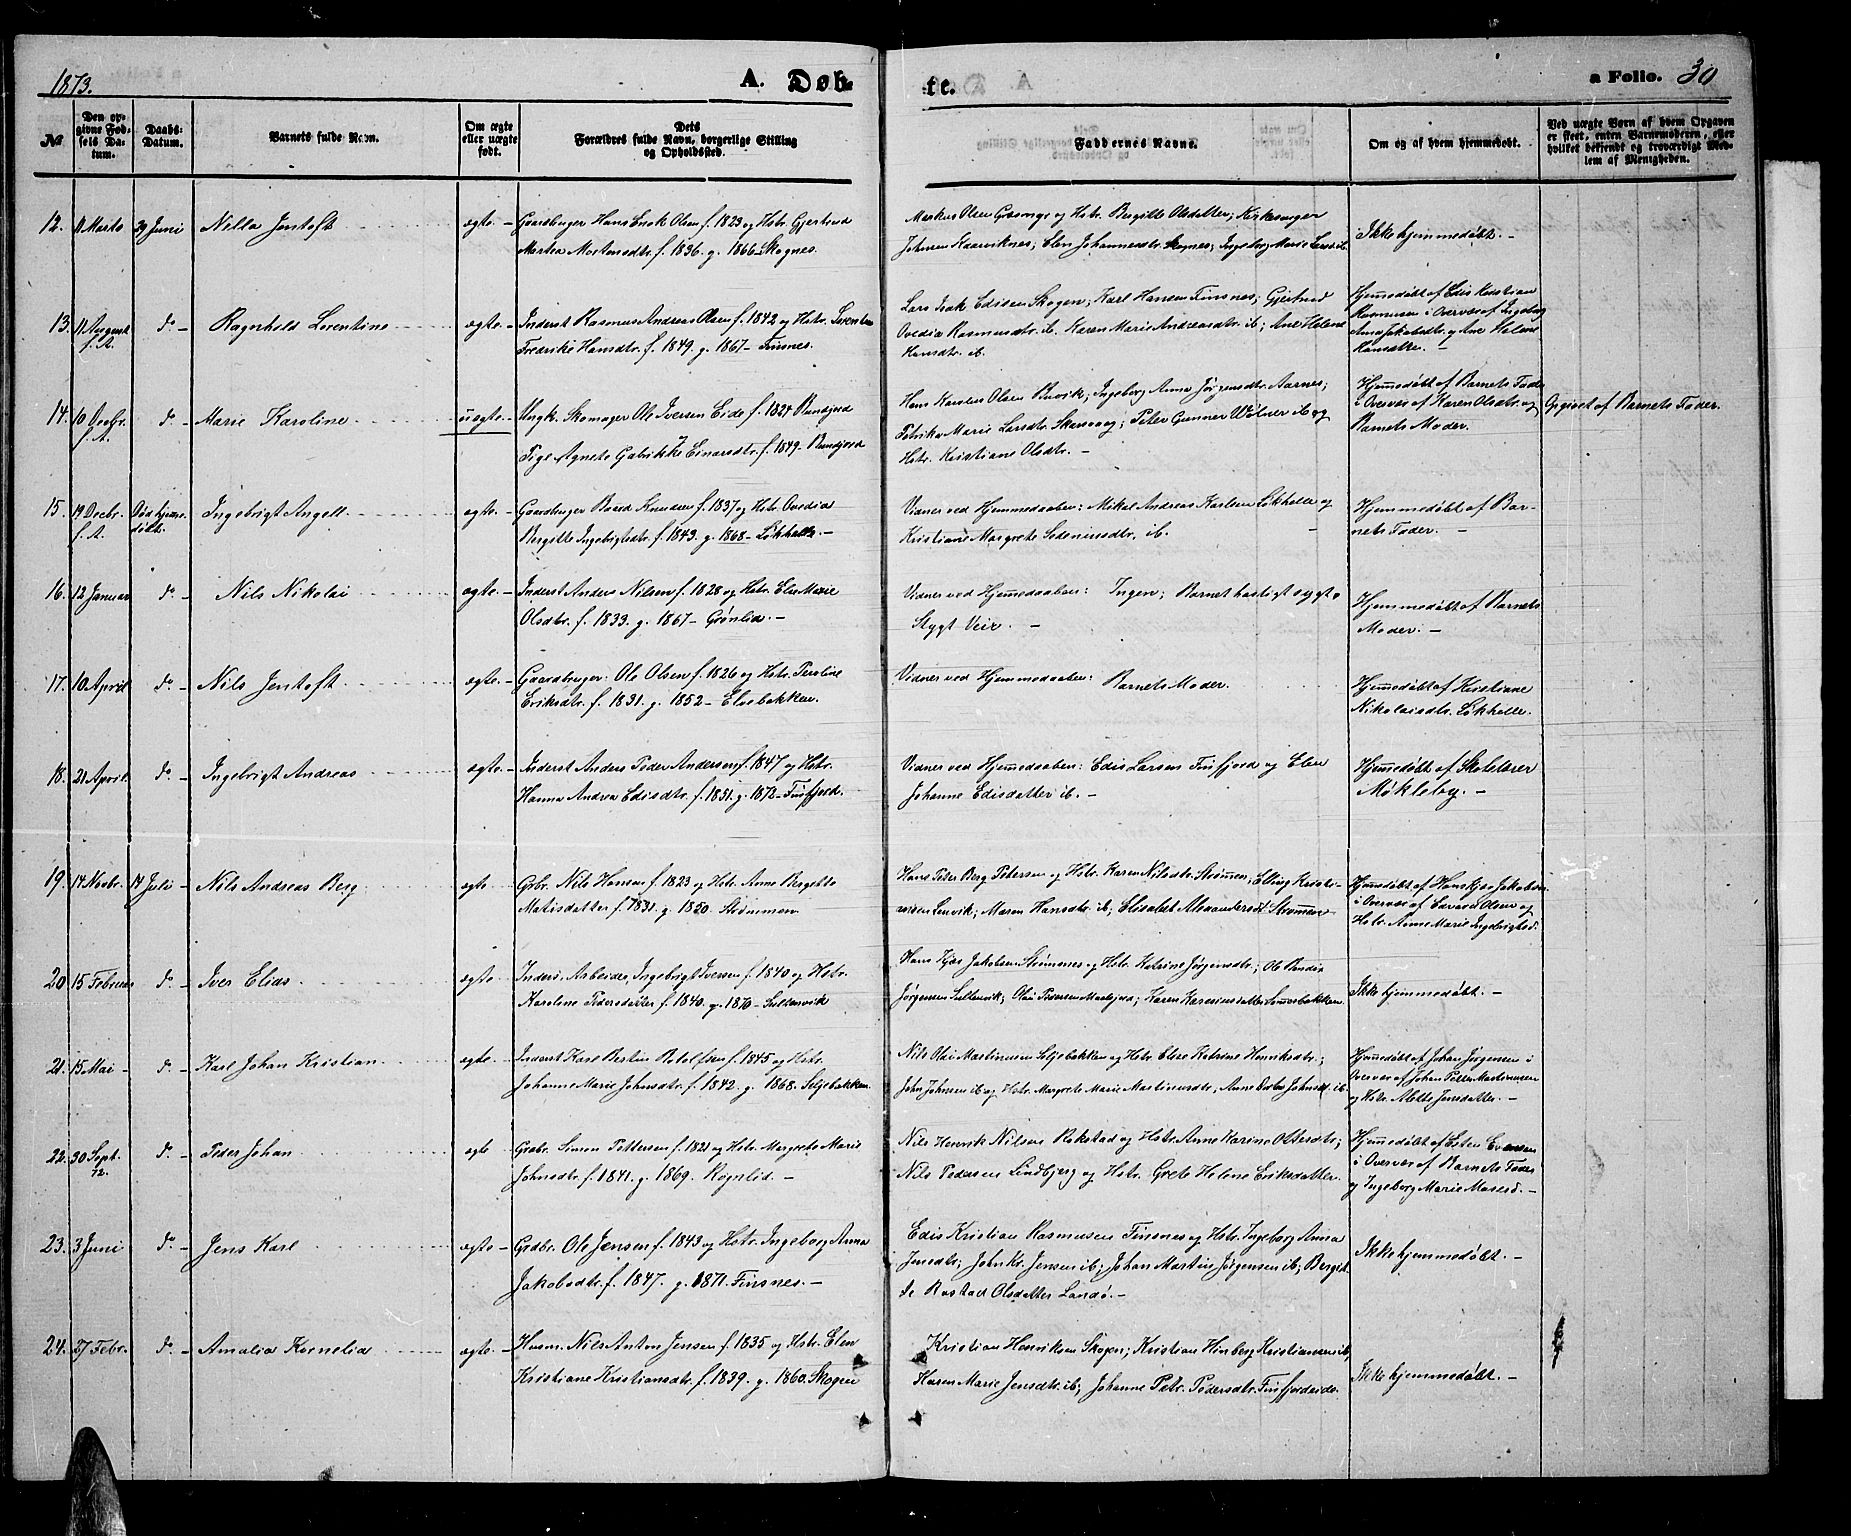 1873.
A. Døb-
te.
a Folio. 30
№
Den op-
givne Fød-
sels Da-
tum.
Daabs-
Datum.
Barnets fulde Navn.
Om ægte
eller uægte
født.
Dets
Forældres fulde Navn, borgerlige Stilling
og Opholdssted.
Faddernes Navne.
Om og af hvem hjemmedøbt.
Ved uægte Børn af hvem Opgaven
er skeet, enten Barnemoderen, eller
hvilket bekjendt og troværdigt Med-
lem af Menigheden.
12. 11 Marts 29 Juni Nella Jentoft ægte.- Gaardbruger Hans Enok Olsen f. 1823 og Hstr. Gjertrud
Martea Mortensdtr. f. 1836. g. 1866 - Skognes.
Markus Olsen og Hstr. Bergitte Olsdatter; Kirkesanger
Johnsen Kaarviknes; Elen Johannesdtr. Skognes; Ingeborg Marie
Ikke hjemmedøbt. -
13. 11 August f. A. do - Ragnhild Lorentine ægte.- Inderst Rasmus Andreas Olsen f. 1842 og Hstr.
Fredrike Hansdtr. f. 1849. g. 1867 - Finsnes.
Lars Isak Edisen Skogen; Karl Hansen Finsnes; Gjertrud
Ovedia Rasmusdtr. ib. Karen Marie Andreasdtr. ib; Ane Helene
Hansdtr. ib.
Hjemmedøbt af Edis Kristian
Rasmusen i Overvær af Ingeborg
Anna Jakobsdtr. og Ane Helene
Hansdtr. -
14. 10 f. A. do - Marie Karoline uægte.- Ungk. Skomager Ole Iversen Eide f. 1824
Pige Agnete Einarsdtr. f. 1849-
Hans Karsten Olsen Buvik; Ingeborg Anna Jørgensdtr. Aarnes;
Petrike Marie Larsdtr. ; Peter Gunner ib og
Hstr. Kristiane Olsdtr. -
Hjemmedøbt af Barnets Fader
i Overvær af Karen Olsdtr. og
Barnets Moder.
Opgivet af Barnets Fader.
15. 19 Decbr. f. A. Død hjemme-
døbt. Ingebrigt Angell ægte.- Gaardbruger Baard Knudsen f. 1837 og Hstr. Ovedia
Bergitte Ingebrigtsdtr. f. 1843. g. 1868 - Løkhelle. -
Vidner ved Hjemmedaaben: Mikal Andreas Karlsen Løkhelle og
Kristiane Margrete Sideniusdtr. ib.
Hjemmedøbt af Bar-
nets Fader. -
16. 12 Januar do - Nils Nikolai ægte.- Inderst Anders Nilsen f. 1828 og Hstr. Else Marie
Olsdtr. f. 1833. g. 1867 - Grønlid. -
Vidner ved Hjemmedaaben: Ingen; Barnet hastigt sygt
Stygt Veir. -
Hjemmedøbt af Barnets
Moder. -
17. 10 April do - Nils Jentoft ægte.- Gaardbruger Ole Olsen f. 1826 og Hstr. Peroline
Eriksdtr. f. 1831. g. 1852 - Elvebakken.
Vidner ved Hjemmedaaben: Barnets Moder.
Hjemmedøbt af Kristiane
Nikolaisdtr. Løkhelle.
18. 21 April do - Ingebrigt Andreas ægte.- Inderst Anders Peder Andersen f. 1847 og Hstr.
Hanna Andrea Edisdtr. f. 1851. g. 1872 - Finfjord.
Vidner ved Hjemmedaaben: Edis Larsen Finfjord og Elen
Johanne Edisdatter ib. -
Hjemmedøbt af Skolelærer
Møkleby. -
19. 14 Novbr. 14 Juli - Nils Andreas Berg ægte Grbr. Nils Hansen f. 1823 og Hstr. Anne Bergitte
Matisdatter f. 1831. g. 1850. Strømmen
Hans Peter Berg Petersen og Hstr. Karen Nilsdtr. Strømmen; Elling Kristi-
ansen Lenvik; Maren Hansdtr. ib; Elisabet Alexandersdtr. Strømmen
Hjemmedøbt af Hans Kjær Jakobsen
i Overvær af Edvard Olsen og
Hstr. Anne Marie Ingebrigtsd.
20 15 Februar do - Iver Elias ægte.- Inderst, Arbeider, Ingebrigt Iversen f. 1840 og Hstr.
Karolene Pedersdatter f. 1840. g. 1870 - Sultenvik
Hans Kjær Jakobsen Strømsnes og Hstr. Katrine Jørgensdtr.; Ole
Jørgensen Sultenvik; Olai Pedersen ; Karen Kasariusdatter
Ikke hjemmedøbt. -
21. 15 Mai - do - Karl Johan Kristian ægte. Inderst Karl Bertin f. 1845 og Hstr.
Johanne Marie Johnsdtr. f. 1842. g. 1868. Seljebakken.
Nils Olai Martinusen Seljebakken og Hstr. Else Katrine Henriksdtr.;
John Johnsen ib og Hstr. Margrete Marie Martinusdtr; Anne Johnsdtr. ib.
Hjemmedøbt af Johan Jørgensen i
Overvær af Johan Petter Martinusen
og Hstr. Mette Jensdatter. -
22. 30 Sept. 72. do - Peder Johan ægte Grbr. Simon Pettersen f. 1821 og Hstr. Margrete Marie
Johnsdtr. f. 1841. g. 1869. Rognlid. -
Nils Henrik Nilsen Rokstad og Hstr. Anne Karine Ottersdtr;
Nils Pedersen Lindbjerg og Hstr. Grete Helene Eriksdatter.
Hjemmedøbt af Esten Evensen
i Overvær af Barnets Fader
og Ingeborg Marie Mosesd. -
23. 3 Juni do - Jens Karl ægte - Grdbr. Ole Jensen f. 1843 og Hstr. Ingeborg Anna
Jakobsdtr. f. 1847. g. 1871. Finsnes. -
Edis Kristian Rasmusen Finsnes og Hstr. Ingeborg Anna
Jensdtr; John Kr. Jensen ib; Johan Martin Jørgensen ib; Bergit-
te Rostad Olsdatter Landø. -
Ikke hjemmedøbt. -
24. 27 Febr. do - Amalia Kornelia ægte.- Husm. Nils Anton Jensen f. 1835 og Hstr. Elen
Kristiane Kristiansdtr. f. 1839. g. 1860. Skogen
Kristian Henriksen Skogen; Kristian Hinberg Kristiansen ib,
Karen Marie Jensdtr. ib; Johanne Petr. Pedersdtr. Finfjordeide.
Ikke hjemmedøbt. -